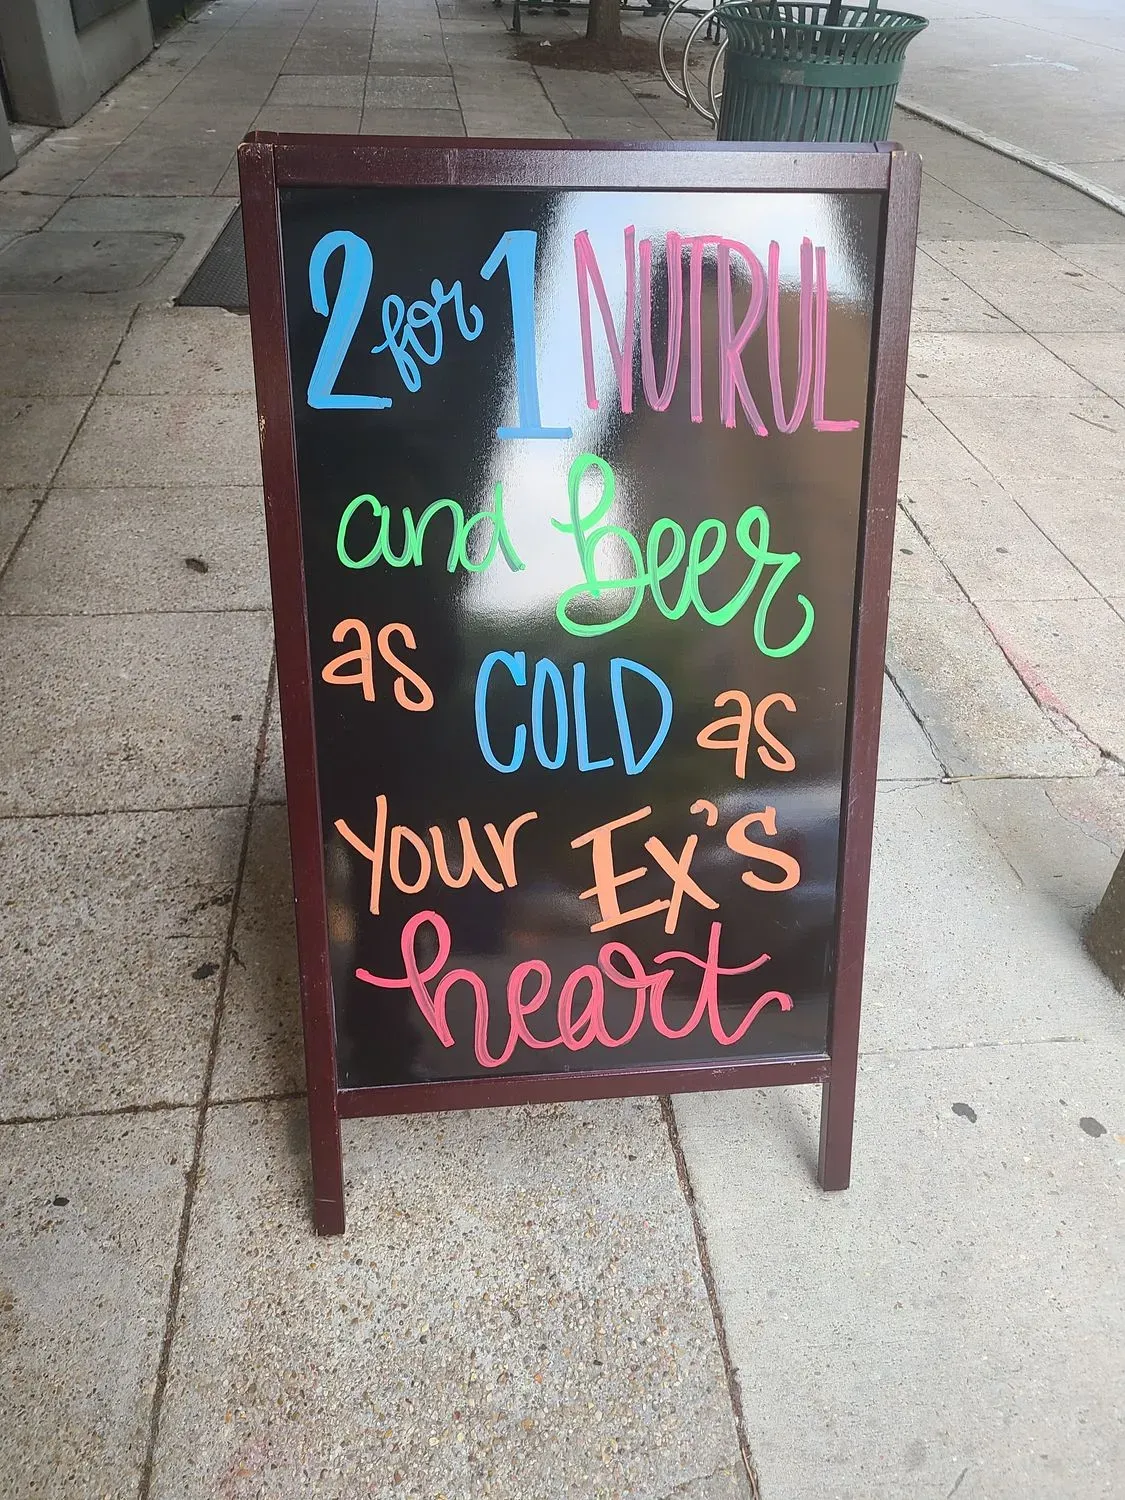 2 for 1 NUTRUL
and beer
as COLD as
your Ex's
heart